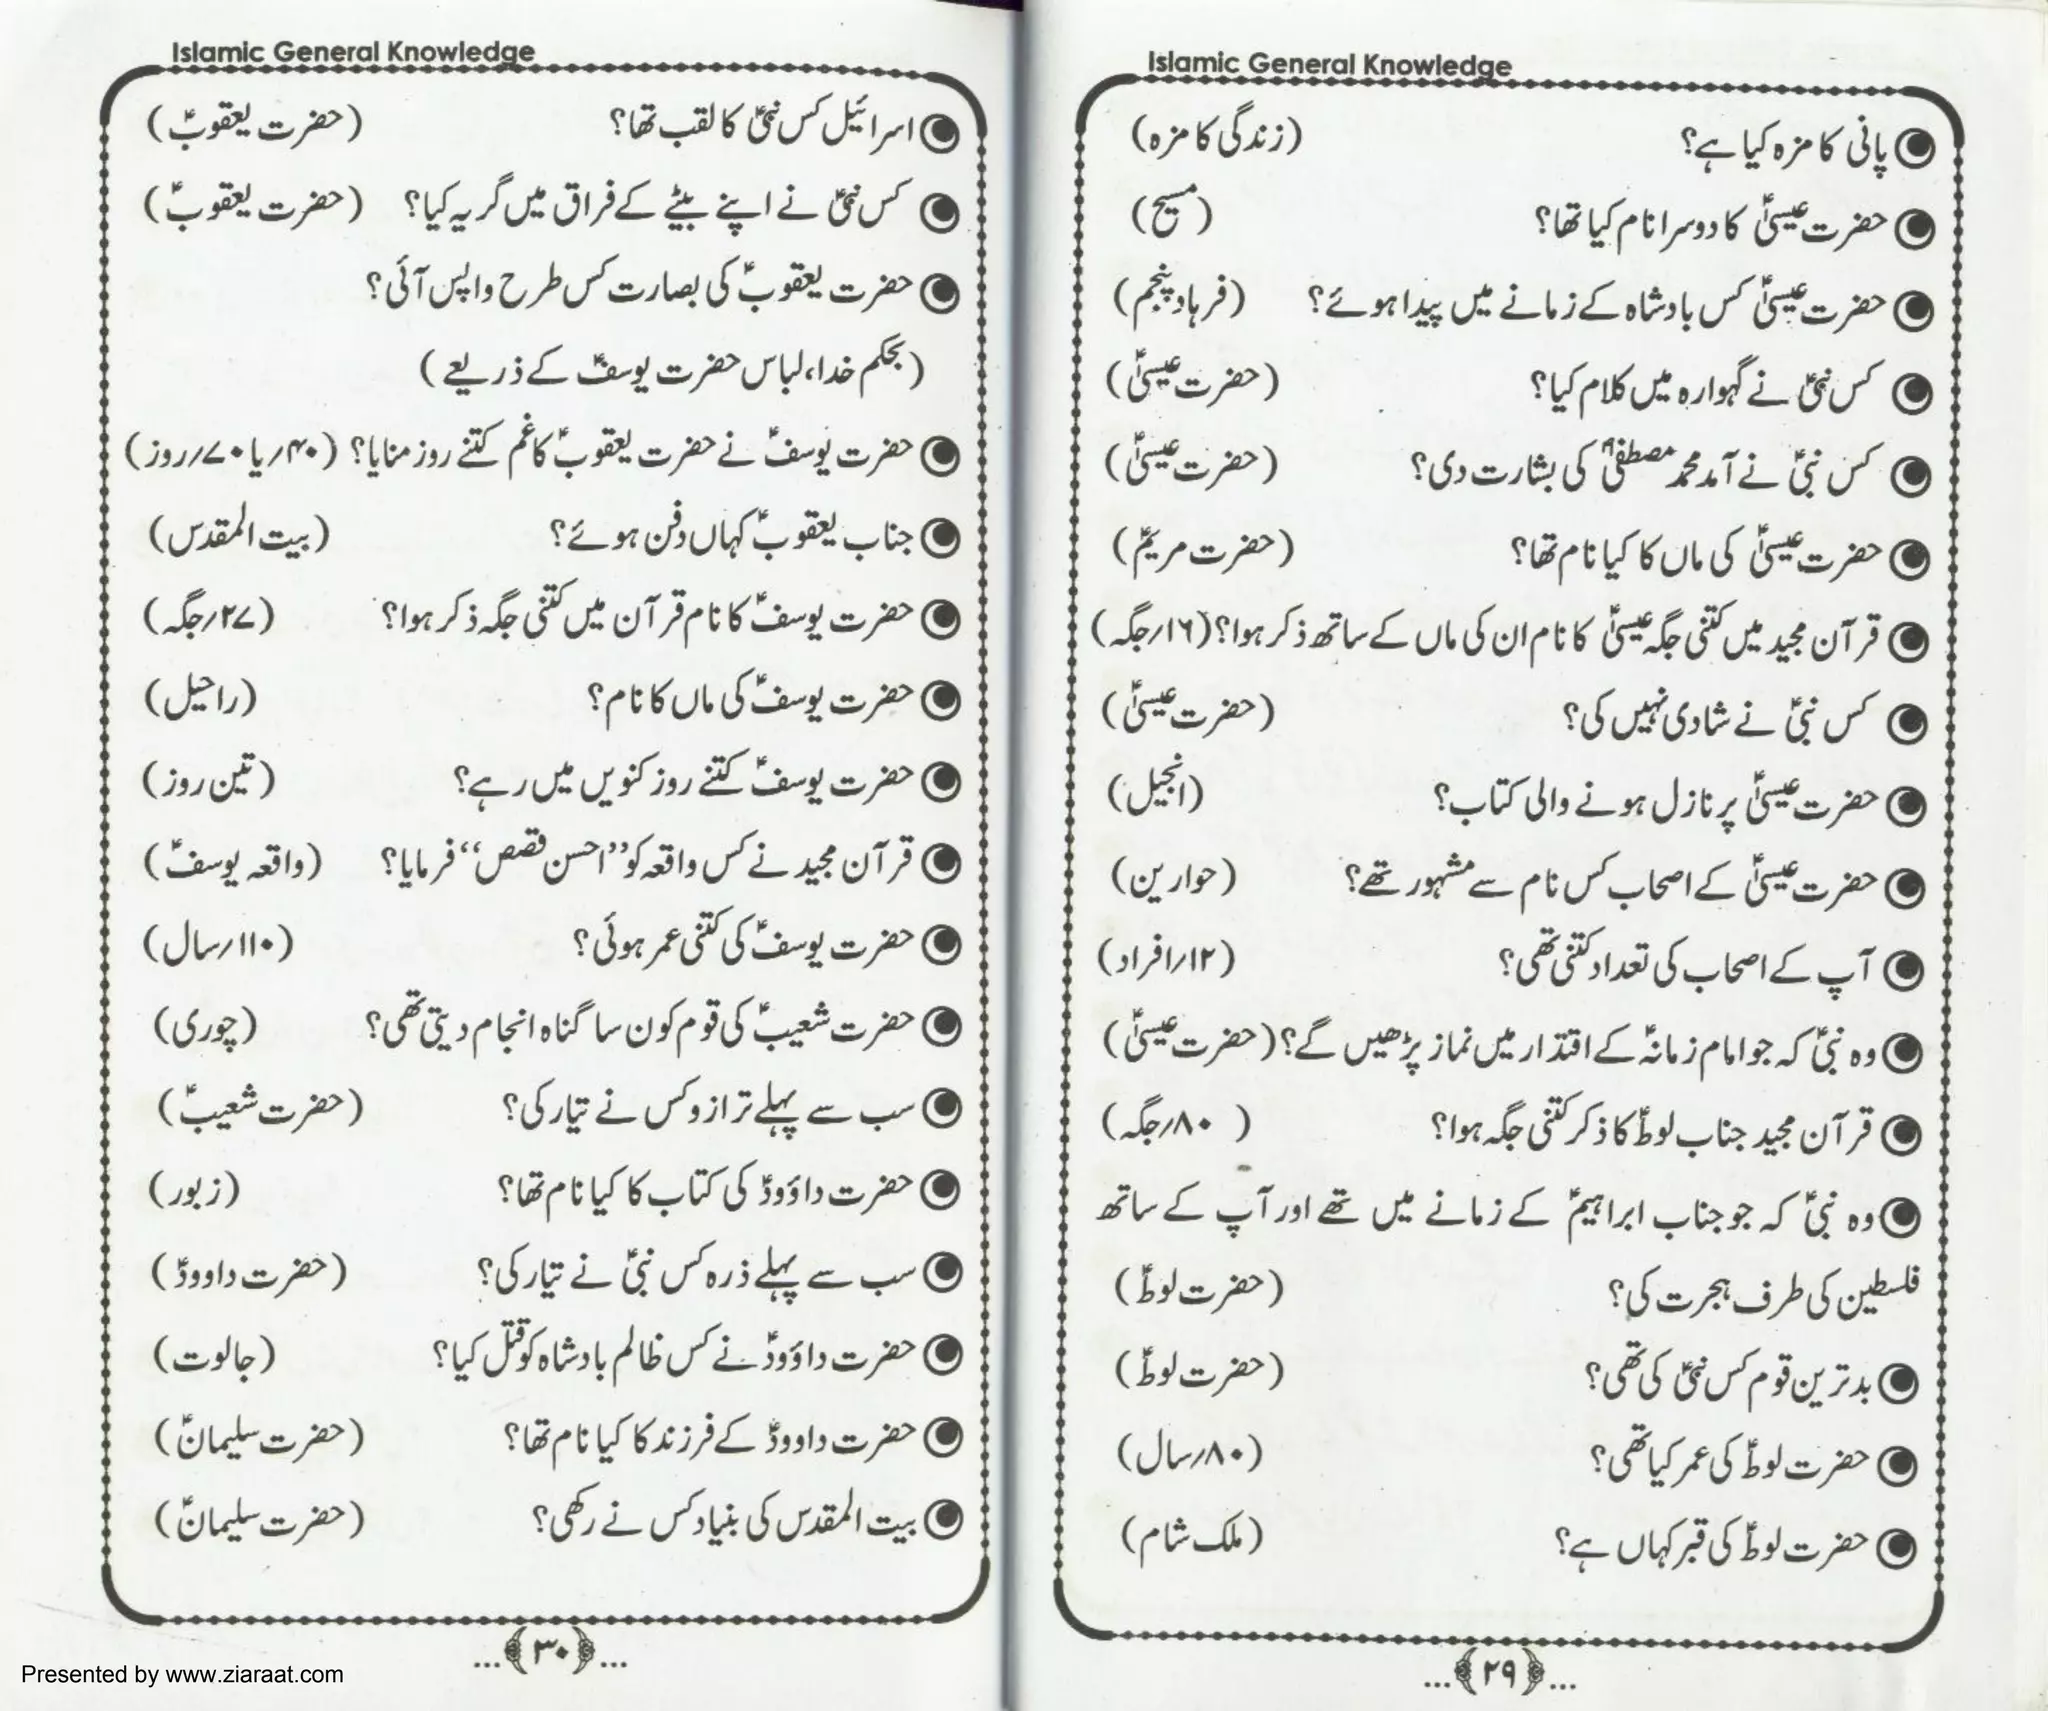 Islamic General Knowledge
پانی کا مزہ کیا ہے؟ (زندگی کا مزہ)
حضرت عیسیٰؑ کا دوسرا نام کیا تھا؟ (مسیح)
حضرت عیسیٰؑ کس بادشاہ کے زمانے میں پیدا ہوئے؟ (فرہاد پنجم)
کس نبیؑ نے گہوارہ میں کلام کیا؟ (حضرت عیسیٰؑ)
کس نبیؑ نے آمد محمد مصطفیٰؐ کی بشارت دی؟ (حضرت عیسیٰؑ)
حضرت عیسیٰؑ کی ماں کا کیا نام تھا؟ (حضرت مریمؑ)
قرآن مجید میں کتنی جگہ عیسیٰؑ کا نام ان کی ماں کے ساتھ ذکر ہوا؟ (۱۶/جگہ)
کس نبیؑ نے شادی نہیں کی؟ (حضرت عیسیٰؑ)
حضرت عیسیٰؑ پر نازل ہونے والی کتاب؟ (انجیل)
حضرت عیسیٰؑ کے اصحاب کس نام سے مشہور تھے؟ (حوارین)
آپ کے اصحاب کی تعداد کتنی تھی؟ (۱۲/افراد)
وہ نبیؑ کہ جو امام زمانہؑ کے اقتدار میں نماز پڑھیں گے؟ (حضرت عیسیٰؑ)
قرآن مجید جناب لوطؑ کا ذکر کتنی جگہ ہوا؟ (۸۰/جگہ)
وہ نبیؑ کہ جو جناب ابراہیمؑ کے زمانے میں تھے اور آپ کے ساتھ
فلسطین کی طرف ہجرت کی؟ (حضرت لوطؑ)
بدترین قوم کس نبیؑ کی تھی؟ (حضرت لوطؑ)
حضرت لوطؑ کی عمر کیا تھی؟ (۸۰/سال)
حضرت لوطؑ کی قبر کہاں ہے؟ (ملک شام)
...﴿۲۹﴾...
Islamic General Knowledge
اسرائیل کس نبیؑ کا لقب تھا؟ (حضرت یعقوبؑ)
کس نبیؑ نے اپنے بیٹے کے فراق میں گریہ کیا؟ (حضرت یعقوبؑ)
حضرت یعقوبؑ کی بصارت کس طرح واپس آئی؟
(بحکم خدا، لباس حضرت یوسفؑ کے ذریعے)
حضرت یوسفؑ نے حضرت یعقوبؑ کا غم کتنے روز منایا؟ (۴۰/یا ۷۰/روز)
جناب یعقوبؑ کہاں دفن ہوئے؟ (بیت المقدس)
حضرت یوسفؑ کا نام قرآن میں کتنی جگہ ذکر ہوا؟ (۲۷/جگہ)
حضرت یوسفؑ کی ماں کا نام؟ (راحیل)
حضرت یوسفؑ کتنے روز کنویں میں رہے؟ (تین روز)
قرآن مجید نے کس واقعہ کو ”احسن قصص“ فرمایا؟ (واقعہ یوسفؑ)
حضرت یوسفؑ کی کتنی عمر ہوئی؟ (۱۱۰/سال)
حضرت شعیبؑ کی قوم کون سا گناہ انجام دیتی تھی؟ (چوری)
سب سے پہلے ترازو کس نے تیار کی؟ (حضرت شعیبؑ)
حضرت داؤودؑ کی کتاب کا کیا نام تھا؟ (زبور)
سب سے پہلے ذرہ کس نبیؑ نے تیار کی؟ (حضرت داوودؑ)
حضرت داؤودؑ نے کس ظالم بادشاہ کو قتل کیا؟ (جالوت)
حضرت داوودؑ کے فرزند کا کیا نام تھا؟ (حضرت سلیمانؑ)
بیت المقدس کی بنیاد کس نے رکھی؟ (حضرت سلیمانؑ)
...﴿۳۰﴾...
Presented by www.ziaraat.com